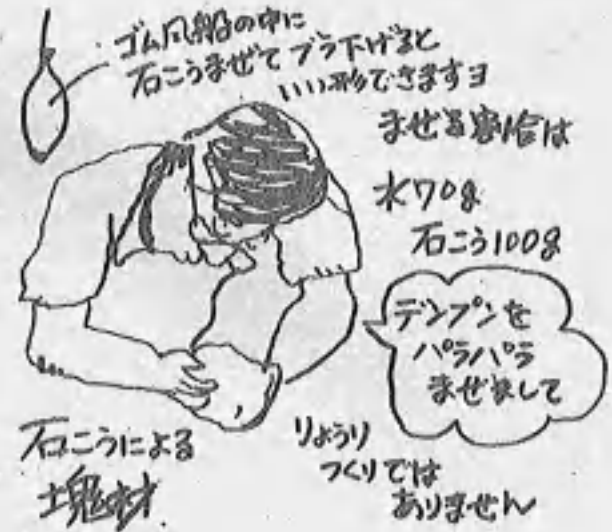 ゴム風船の中に
石こうまぜて ブラ下げると
いい形できますヨ
まぜる割合は
水70g
石こう100g
デンプンを
パラパラ
まぜまして
石こうによる
塊材
りょうり
つくりでは
ありません